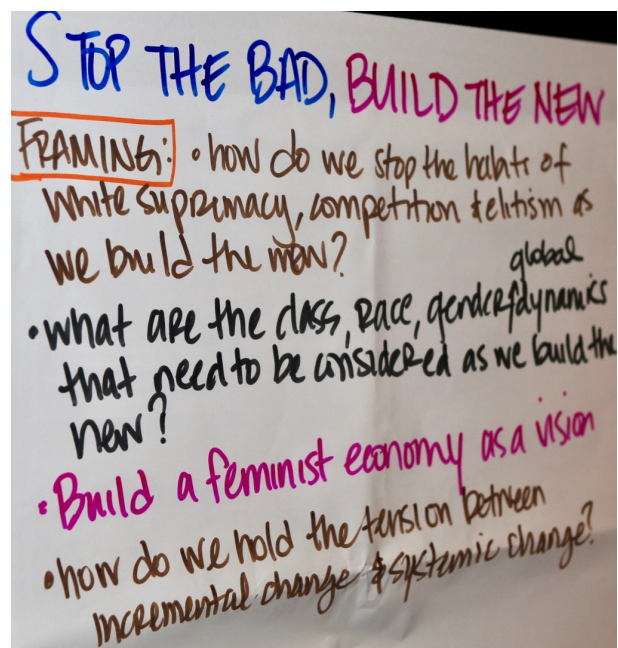 STOP THE BAD, BUILD THE NEW
FRAMING: • how do we stop the habits of
white supremacy, competition & elitism as
we build the new?
global
• what are the class, race, gender & dynamics
that need to be considered as we build the
new?
• Build a feminist economy as a vision
• how do we hold the tension between
incremental change & systemic change?